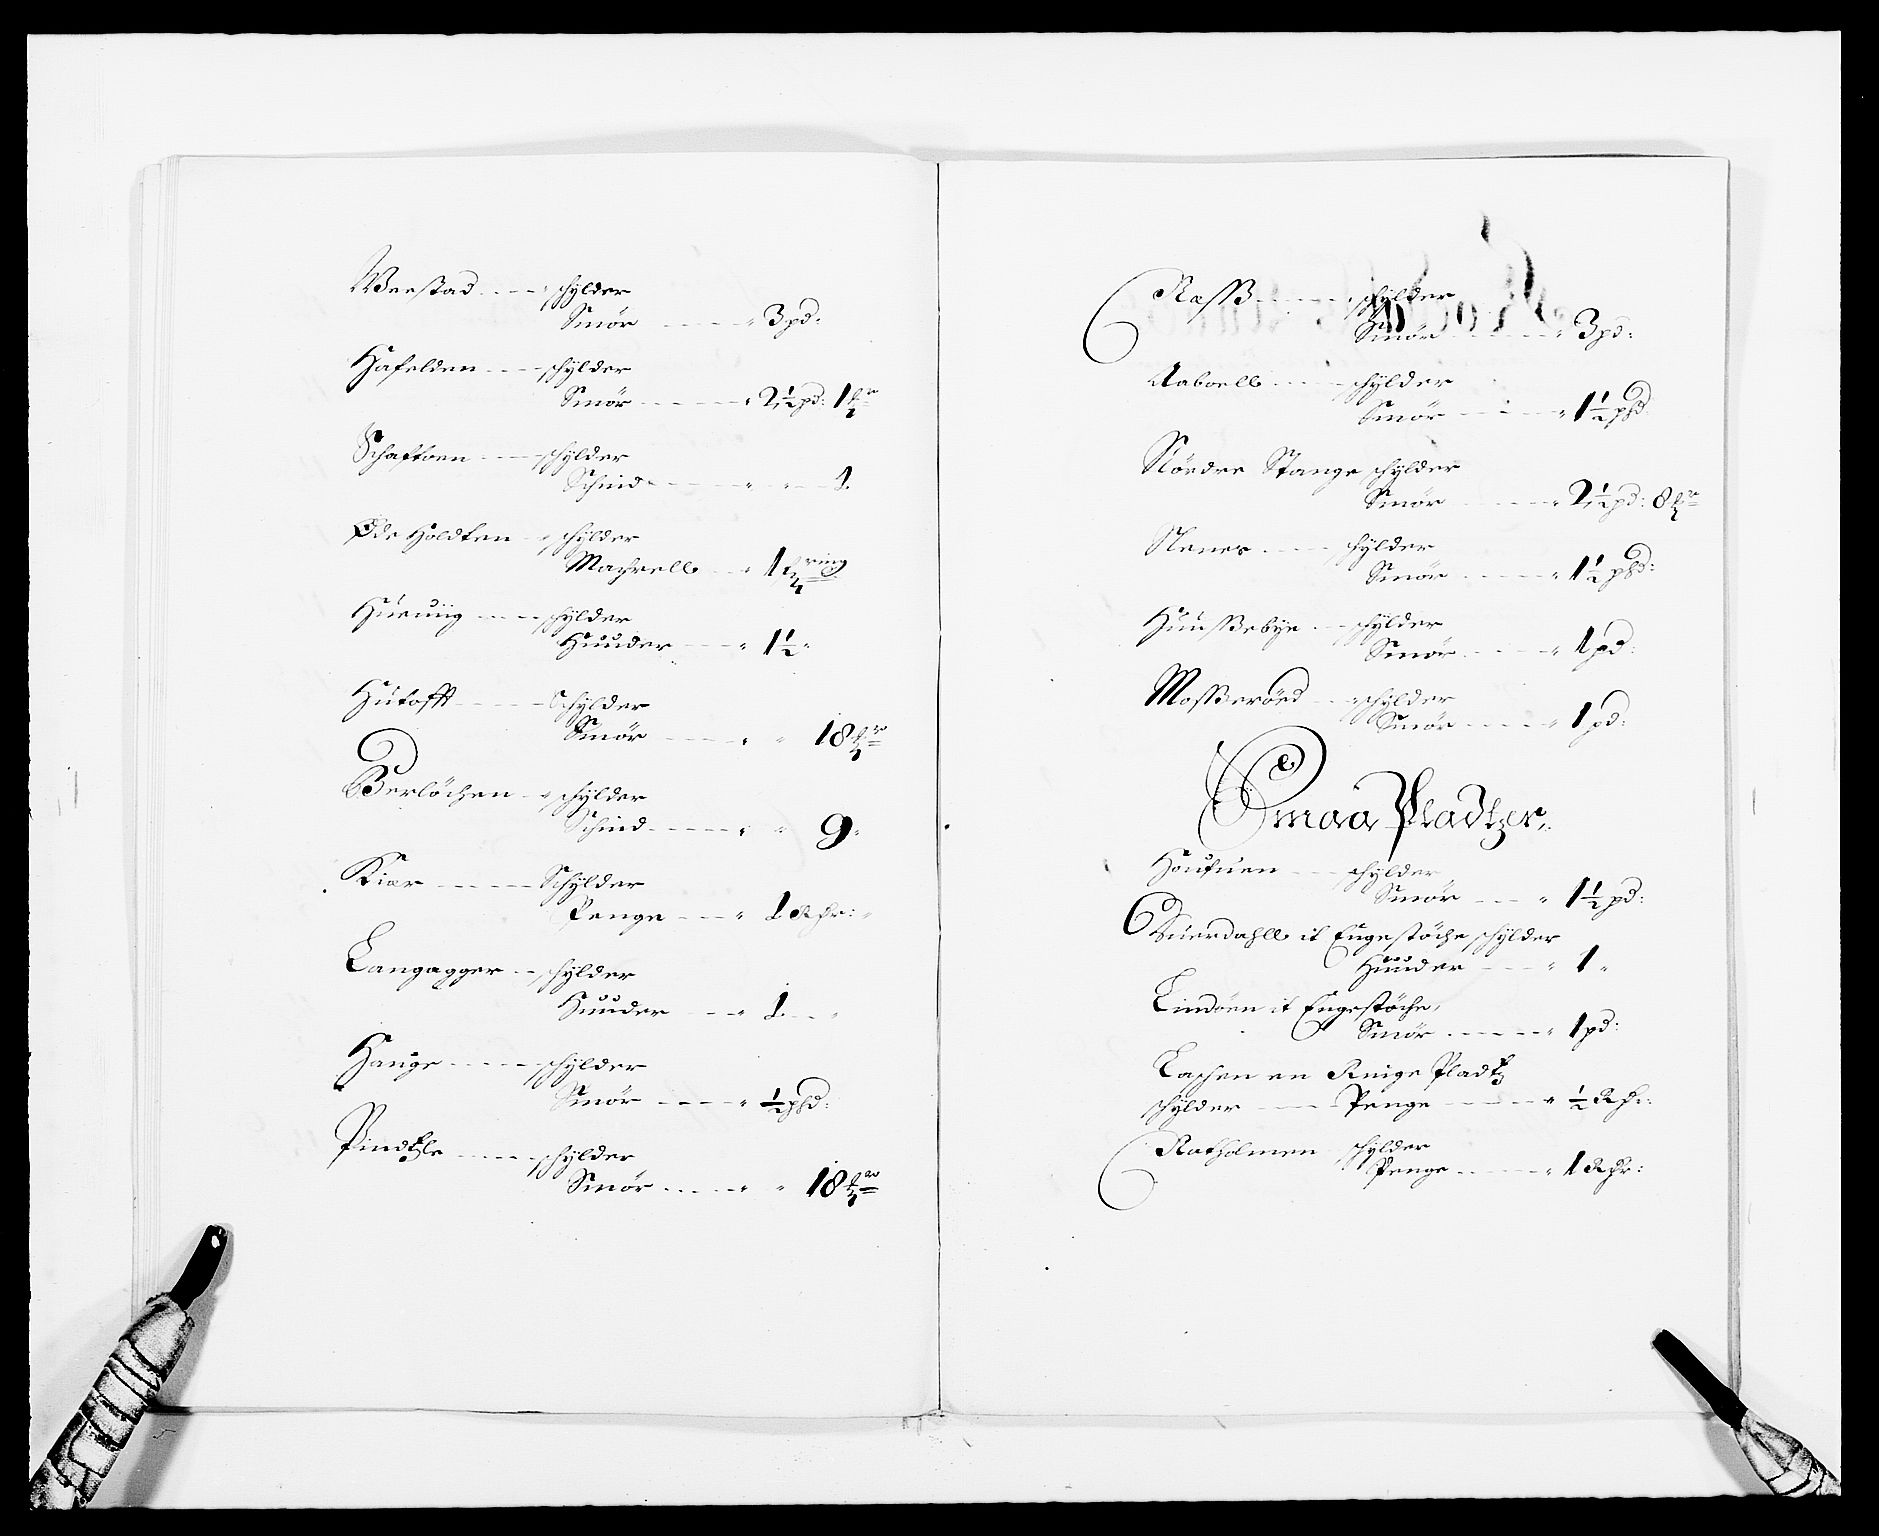 Weestad - - - - schylder
Smör - - - - - - 3 pd:
Hafelden - - - - schylder
Smör - - - - - - 2½ pd: 1
Schaftoen - - - - schylder
Schind - - - - - - - 1
Øde Holdten - - schylder
Machrell - - - 1
schylder
Huuder - - - 1½
Hütofft - - - - - Schylder
Smör - - - - - 18
Berlöchen - - schylder
Schind - - - - - 9
Kiær - - - - - Schylder
Penge - - - 1
Langagger - - schylder
Huuder - - - 1
Hauge - - - - - schylder
Smör - - - - ½ pd:
schylder
Smör - - - - - 18
Næss - - - - - schylder
Smör - - - - - - 3 pd:
Aaboell - - - - schylder
Smör - - - - - 1½ pd
Nördre Stange schylder
Smör - - - - - 2½ pd: 8
Nenes - - - - schylder
Smör - - - - - 1½ pd:
Huussebye - - schylder
Smör - - - - - 1 pd:
Mosseröed - - schylder
Smör - - - - - 1 pd:
Smaa Pladtzer
- - - schylder
Smör - - - 1½ pd:
it Engestöche schylder
Huuder - - - 1
Lindöen it Engestöche,
Smör - - - - - 1 pd:
en Ringe Pladtz
schylder - - - - Penge - - - - - ½
Ratholmen schylder
Penge - - - - - 1